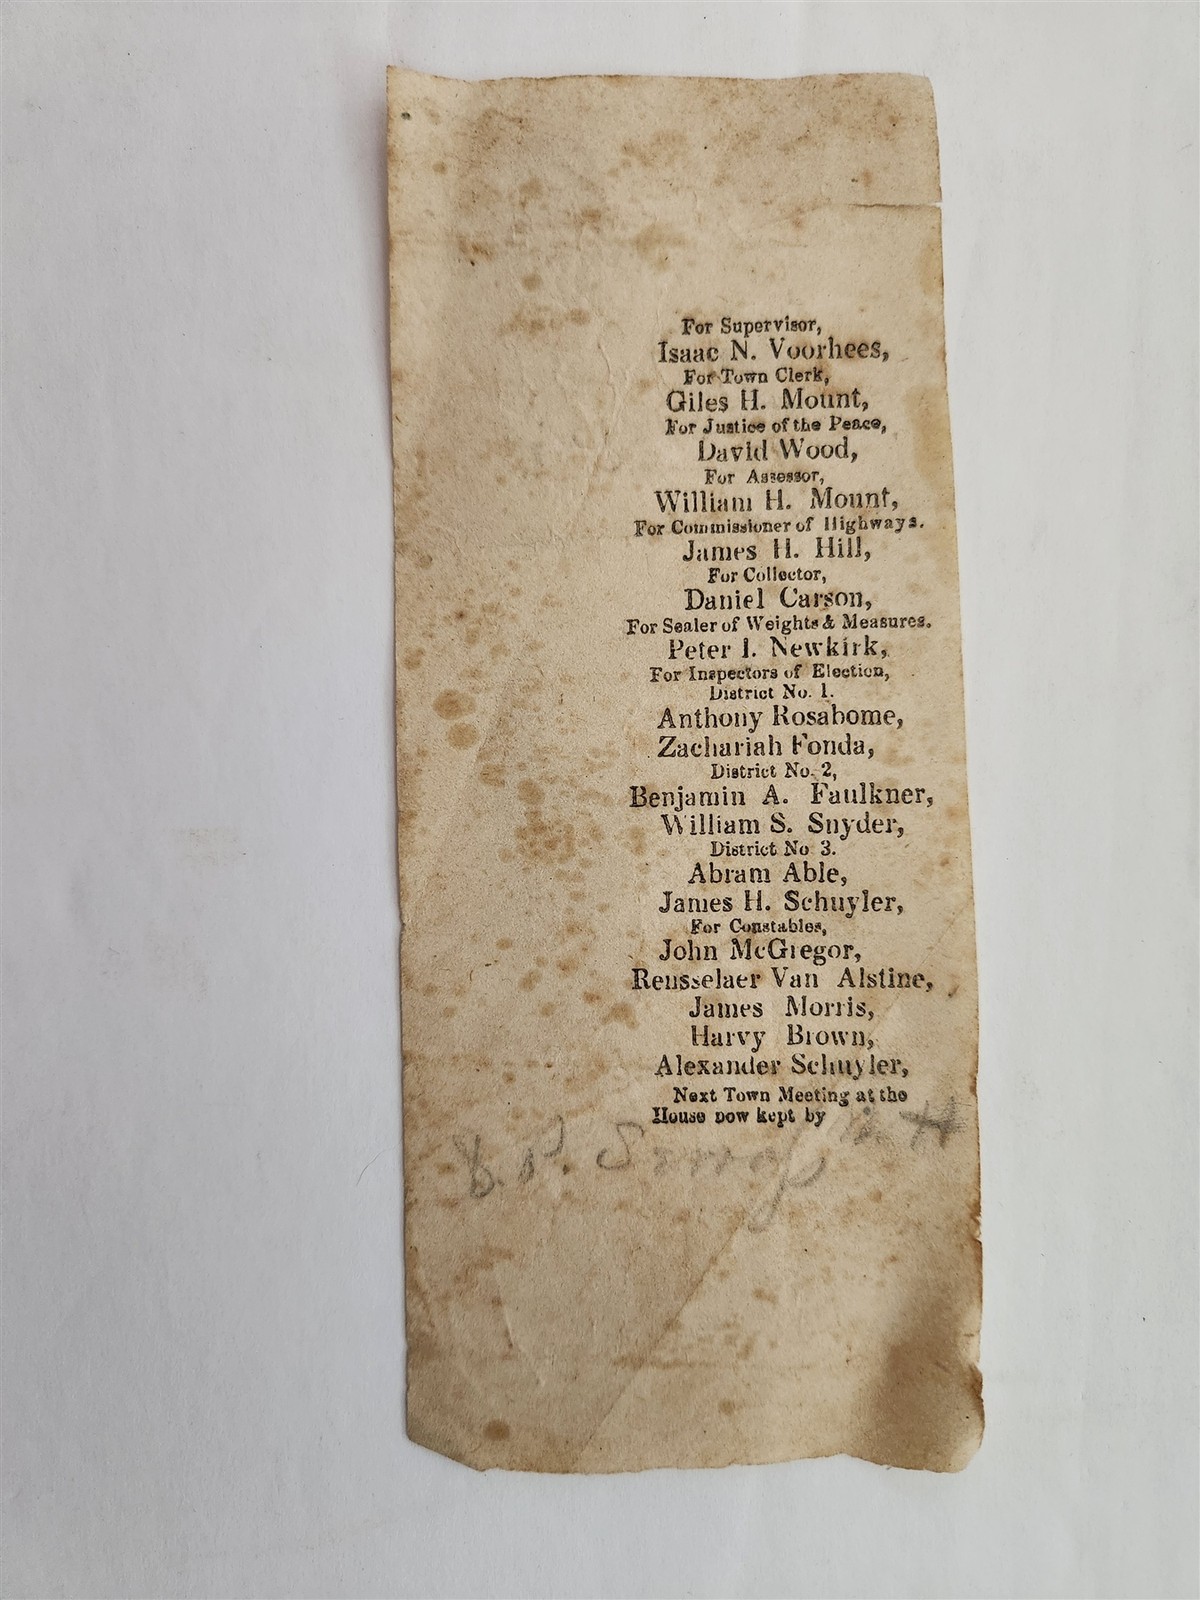 For Supervisor,
Isaac N. Voorhees,
For Town Clerk,
Giles H. Mount,
For Justice of the Peace,
David Wood,
For Assessor,
William H. Mount,
For Commissioner of Highways.
James H. Hill,
For Collector,
Daniel Carson,
For Sealer of Weights & Measures.
Peter I. Newkirk,
For Inspectors of Election,
District No. 1.
Anthony Rosabome,
Zachariah Fonda,
District No. 2,
Benjamin A. Faulkner,
William S. Snyder,
District No 3.
Abram Able,
James H. Schuyler,
For Constables,
John McGregor,
Rensselaer Van Alstine,
James Morris,
Harvy Brown,
Alexander Schuyler,
Next Town Meeting at the
House now kept by